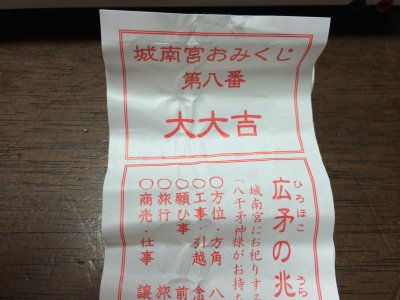 城南宮おみくじ
第八番
大大吉
ひろほこ うら
広矛の兆
城南宮にお祀りする
「八千矛神様がお持ち
○方位・方角 八
○工事・引越 念
○願ひ事 前
○旅行 旅
○商売・仕事 譲